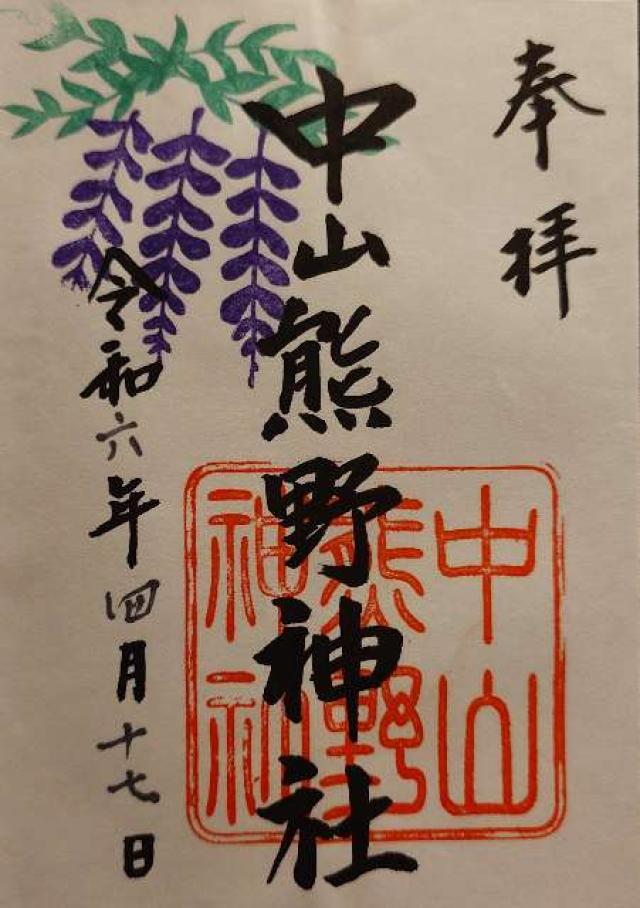 奉拝
中山熊野神社
令和六年四月十七日
中山
熊野
神社